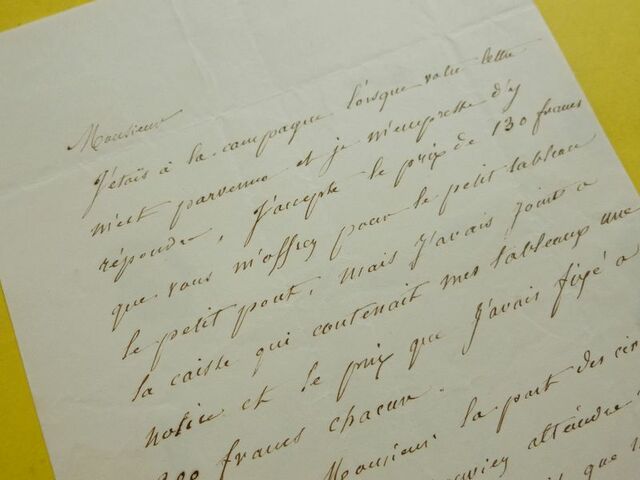 Monsieur
J'étais à la campagne lorsque votre lettre
m'est parvenue et je m'empresse d'y
répondre. J'accepte le prix de 130 francs
que vous m'offrez pour le petit tableau
le petit pont, mais j'avais joint a
la caisse qui contenait mes tableaux une
notice et le prix que j'avais fixé a
francs chacun.
Monsieur la part des cir
attendre
que